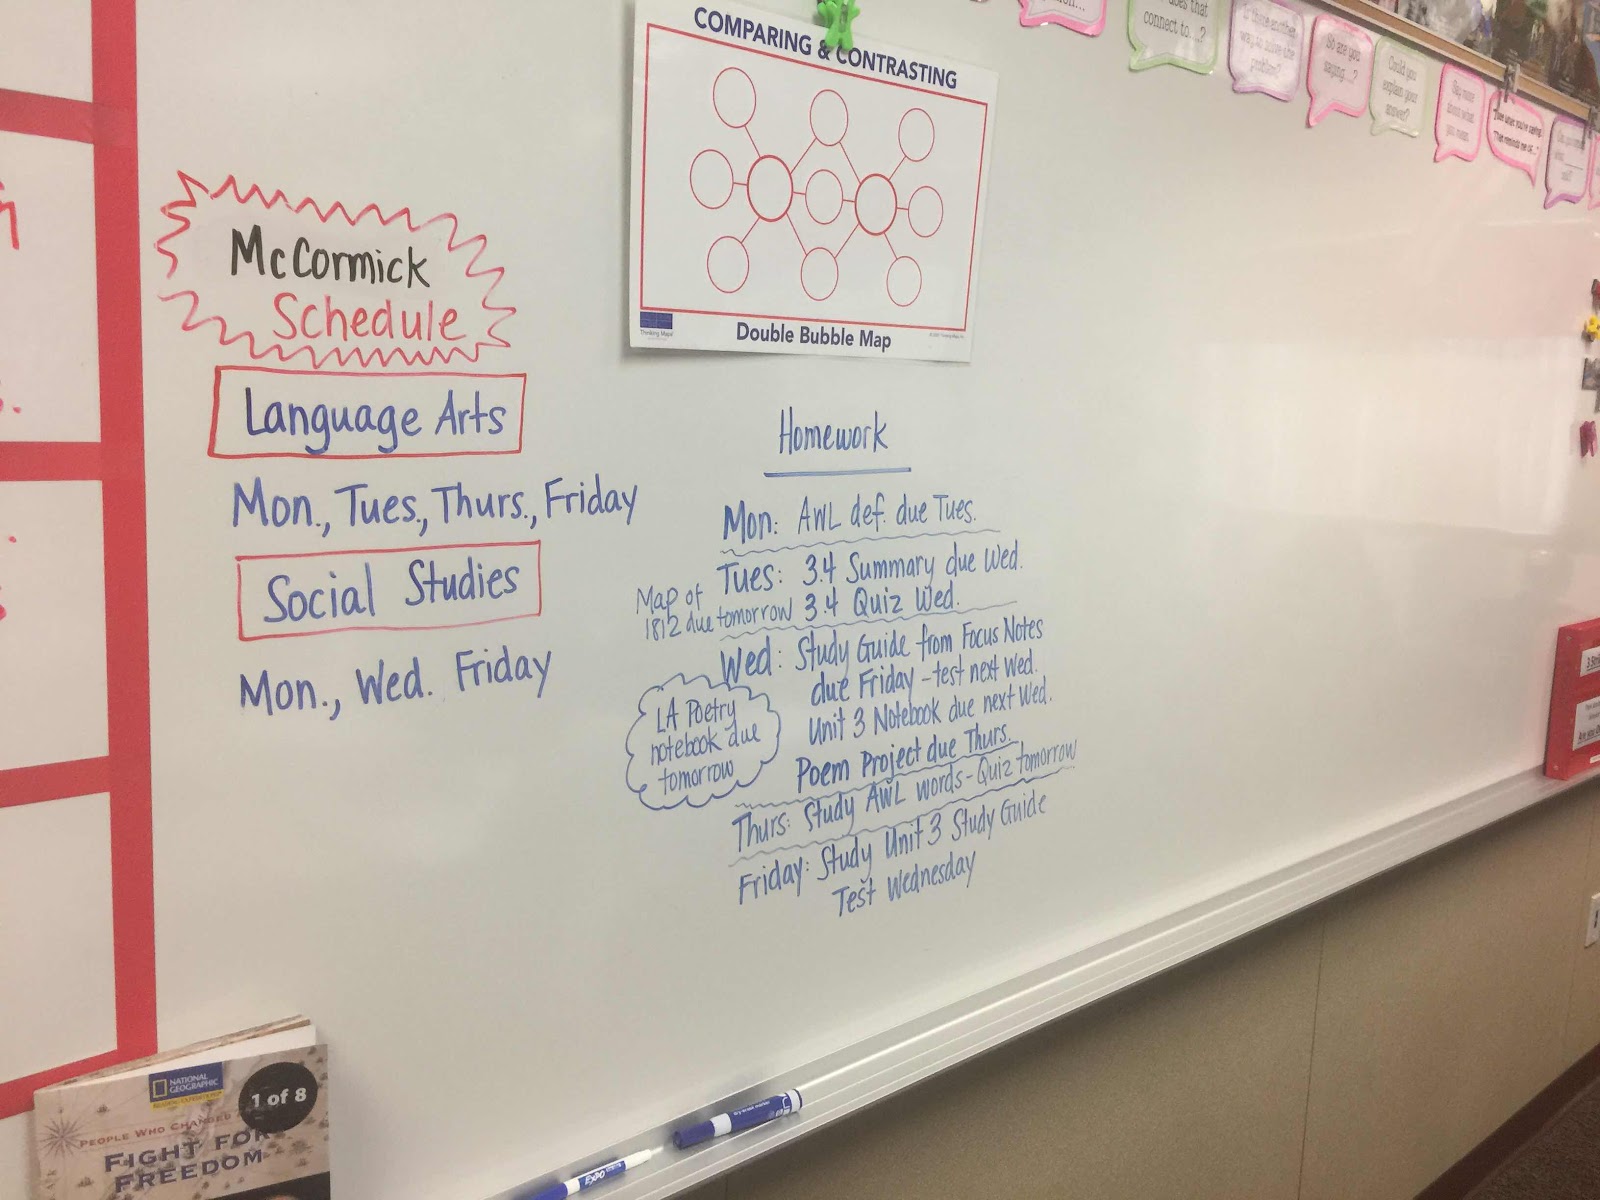 COMPARING & CONTRASTING
Double Bubble Map
Thinking Maps
connect to....?
Is there another
way to solve the
problem?
So are you
saying....?
Could you
explain your
answer?
Say more
about what
you mean.
McCormick
Schedule
Language Arts
Mon., Tues., Thurs., Friday
Social Studies
Mon., Wed. Friday
Homework
Mon: AWL def. due Tues.
Tues: 3.4 Summary due Wed.
3.4 Quiz Wed.
Map of
1812 due tomorrow
Wed: Study Guide from Focus Notes
due Friday - test next Wed.
Unit 3 Notebook due next Wed.
Poem Project due Thurs.
LA Poetry
notebook due
tomorrow
Thurs: Study AWL words - Quiz tomorrow
Friday: Study Unit 3 Study Guide
Test Wednesday
NATIONAL
GEOGRAPHIC
1 of 8
PEOPLE WHO CHANGED
FIGHT FOR
FREEDOM
EXPO